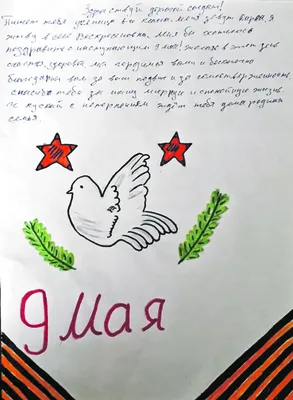 Здравствуй дорогой солдат!
Пишет тебя ученица 6 класса меня зовут Варя я
живу в селе Воскресеновка. Мня бы хотелось
поздравить с наступающим 9 мая! Желаю в этот день
счастья, здоровья, мы гордимся вами и бесконечно
благодарны вам за ваш подвиг и за самоотверженность.
спасибо тебе за нашу мирную и спокойную жизнь.
пускай с нетерпением ждёт тебя дома родная
семья.
9 Мая